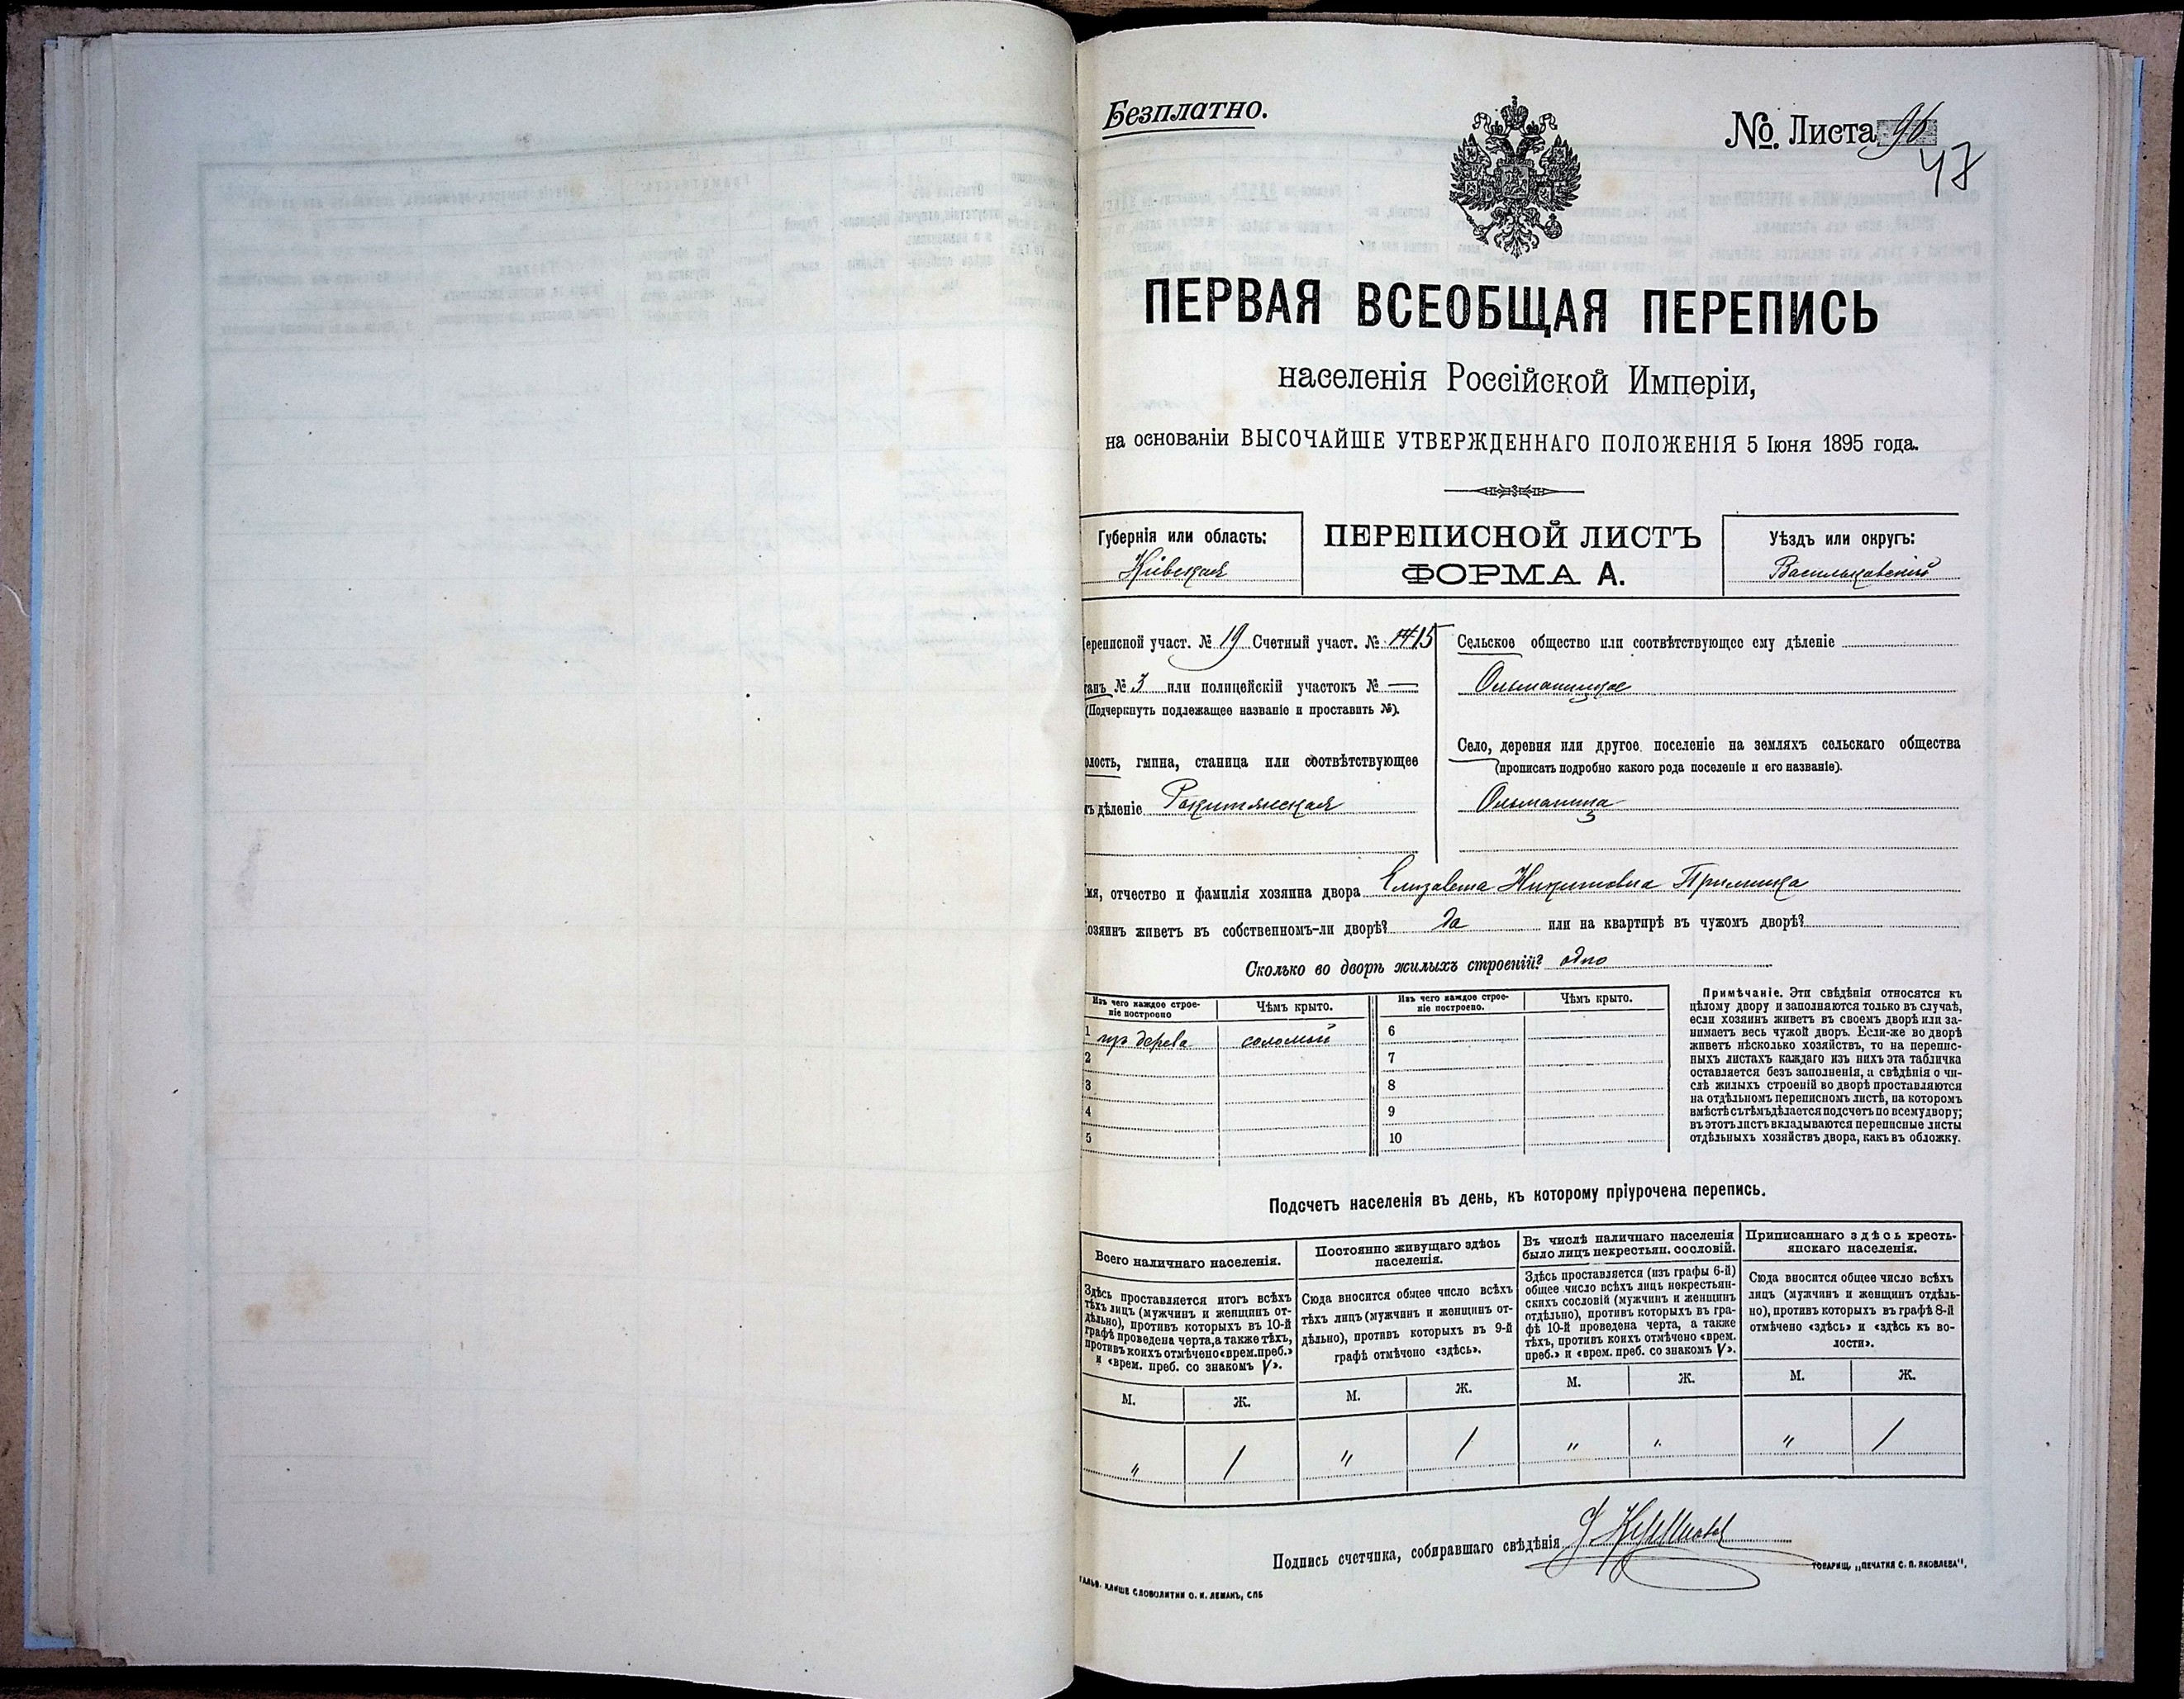 Безплатно.
№. Листа 96
47
ПЕРВАЯ ВСЕОБЩАЯ ПЕРЕПИСЬ
населенія Россійской Имперіи,
на основаніи ВЫСОЧАЙШЕ УТВЕРЖДЕННАГО ПОЛОЖЕНІЯ 5 Іюня 1895 года.
Губернія или область:
Кіевская
ПЕРЕПИСНОЙ ЛИСТЪ
ФОРМА А.
Уѣздъ или округъ:
Васильковскій
ереписной участ. № 19 Счетный участ. № 14 15
танъ № 3 или полицейскій участокъ № —
(Подчеркнуть подлежащее названіе и проставить №).
олость, гмина, станица или соотвѣтствующее
ъ дѣленіе Рокитянская
Сельское общество или соотвѣтствующее ему дѣленіе
Ольшаницкое
Село, деревня или другое поселеніе на земляхъ сельскаго общества
(прописать подробно какого рода поселеніе и его названіе).
Ольшаница
мя, отчество и фамилія хозяина двора Елизавета Никитовна Примица
озяинъ живетъ въ собственномъ-ли дворѣ? Да или на квартирѣ въ чужомъ дворѣ?
Сколько во дворѣ жилыхъ строеній? одно
Изъ чего каждое строе-
ніе построено
Чѣмъ крыто.
Изъ чего каждое строе-
ніе построено.
Чѣмъ крыто.
1 изъ дерева соломой 6
2 7
3 8
4 9
5 10
Примѣчаніе. Эти свѣдѣнія относятся къ
цѣлому двору и заполняются только въ случаѣ,
если хозяинъ живетъ въ своемъ дворѣ или за-
нимаетъ весь чужой дворъ. Если-же во дворѣ
живетъ нѣсколько хозяйствъ, то на перепис-
ныхъ листахъ каждаго изъ нихъ эта табличка
оставляется безъ заполненія, а свѣдѣнія о чи-
слѣ жилыхъ строеній во дворѣ проставляются
на отдѣльномъ переписномъ листѣ, на которомъ
вмѣстѣ съ тѣмъ дѣлается подсчетъ по всему двору;
въ этотъ листъ вкладываются переписные листы
отдѣльныхъ хозяйствъ двора, какъ въ обложку.
Подсчетъ населенія въ день, къ которому пріурочена перепись.
Всего наличнаго населенія.
Здѣсь проставляется итогъ всѣхъ
тѣхъ лицъ (мужчинъ и женщинъ от-
дѣльно), противъ которыхъ въ 10-й
графѣ проведена черта, а также тѣхъ,
противъ коихъ отмѣчено «врем. преб.»
и «врем. преб. со знакомъ V».
Постоянно живущаго здѣсь
населенія.
Сюда вносится общее число всѣхъ
тѣхъ лицъ (мужчинъ и женщинъ от-
дѣльно), противъ которыхъ въ 9-й
графѣ отмѣчено «здѣсь».
Въ числѣ наличнаго населенія
было лицъ некрестьян. сословій.
Здѣсь проставляется (изъ графы 6-й)
общее число всѣхъ лицъ некрестьян-
скихъ сословій (мужчинъ и женщинъ
отдѣльно), противъ которыхъ въ гра-
фѣ 10-й проведена черта, а также
тѣхъ, противъ коихъ отмѣчено «врем.
преб.» и «врем. преб. со знакомъ V».
Приписаннаго здѣсь кресть-
янскаго населенія.
Сюда вносится общее число всѣхъ
лицъ (мужчинъ и женщинъ отдѣль-
но), противъ которыхъ въ графѣ 8-й
отмѣчено «здѣсь» и «здѣсь къ во-
лости».
М. Ж. М. Ж. М. Ж. М. Ж.
" 1 " 1 " " " 1
Подпись счетчика, собиравшаго свѣдѣнія
ГАЛЬВ. КЛИШЕ СЛОВОЛИТНИ О. И. ЛЕМАНЪ, СПБ
ТОВАРИЩ. „ПЕЧАТНЯ С. П. ЯКОВЛЕВА".